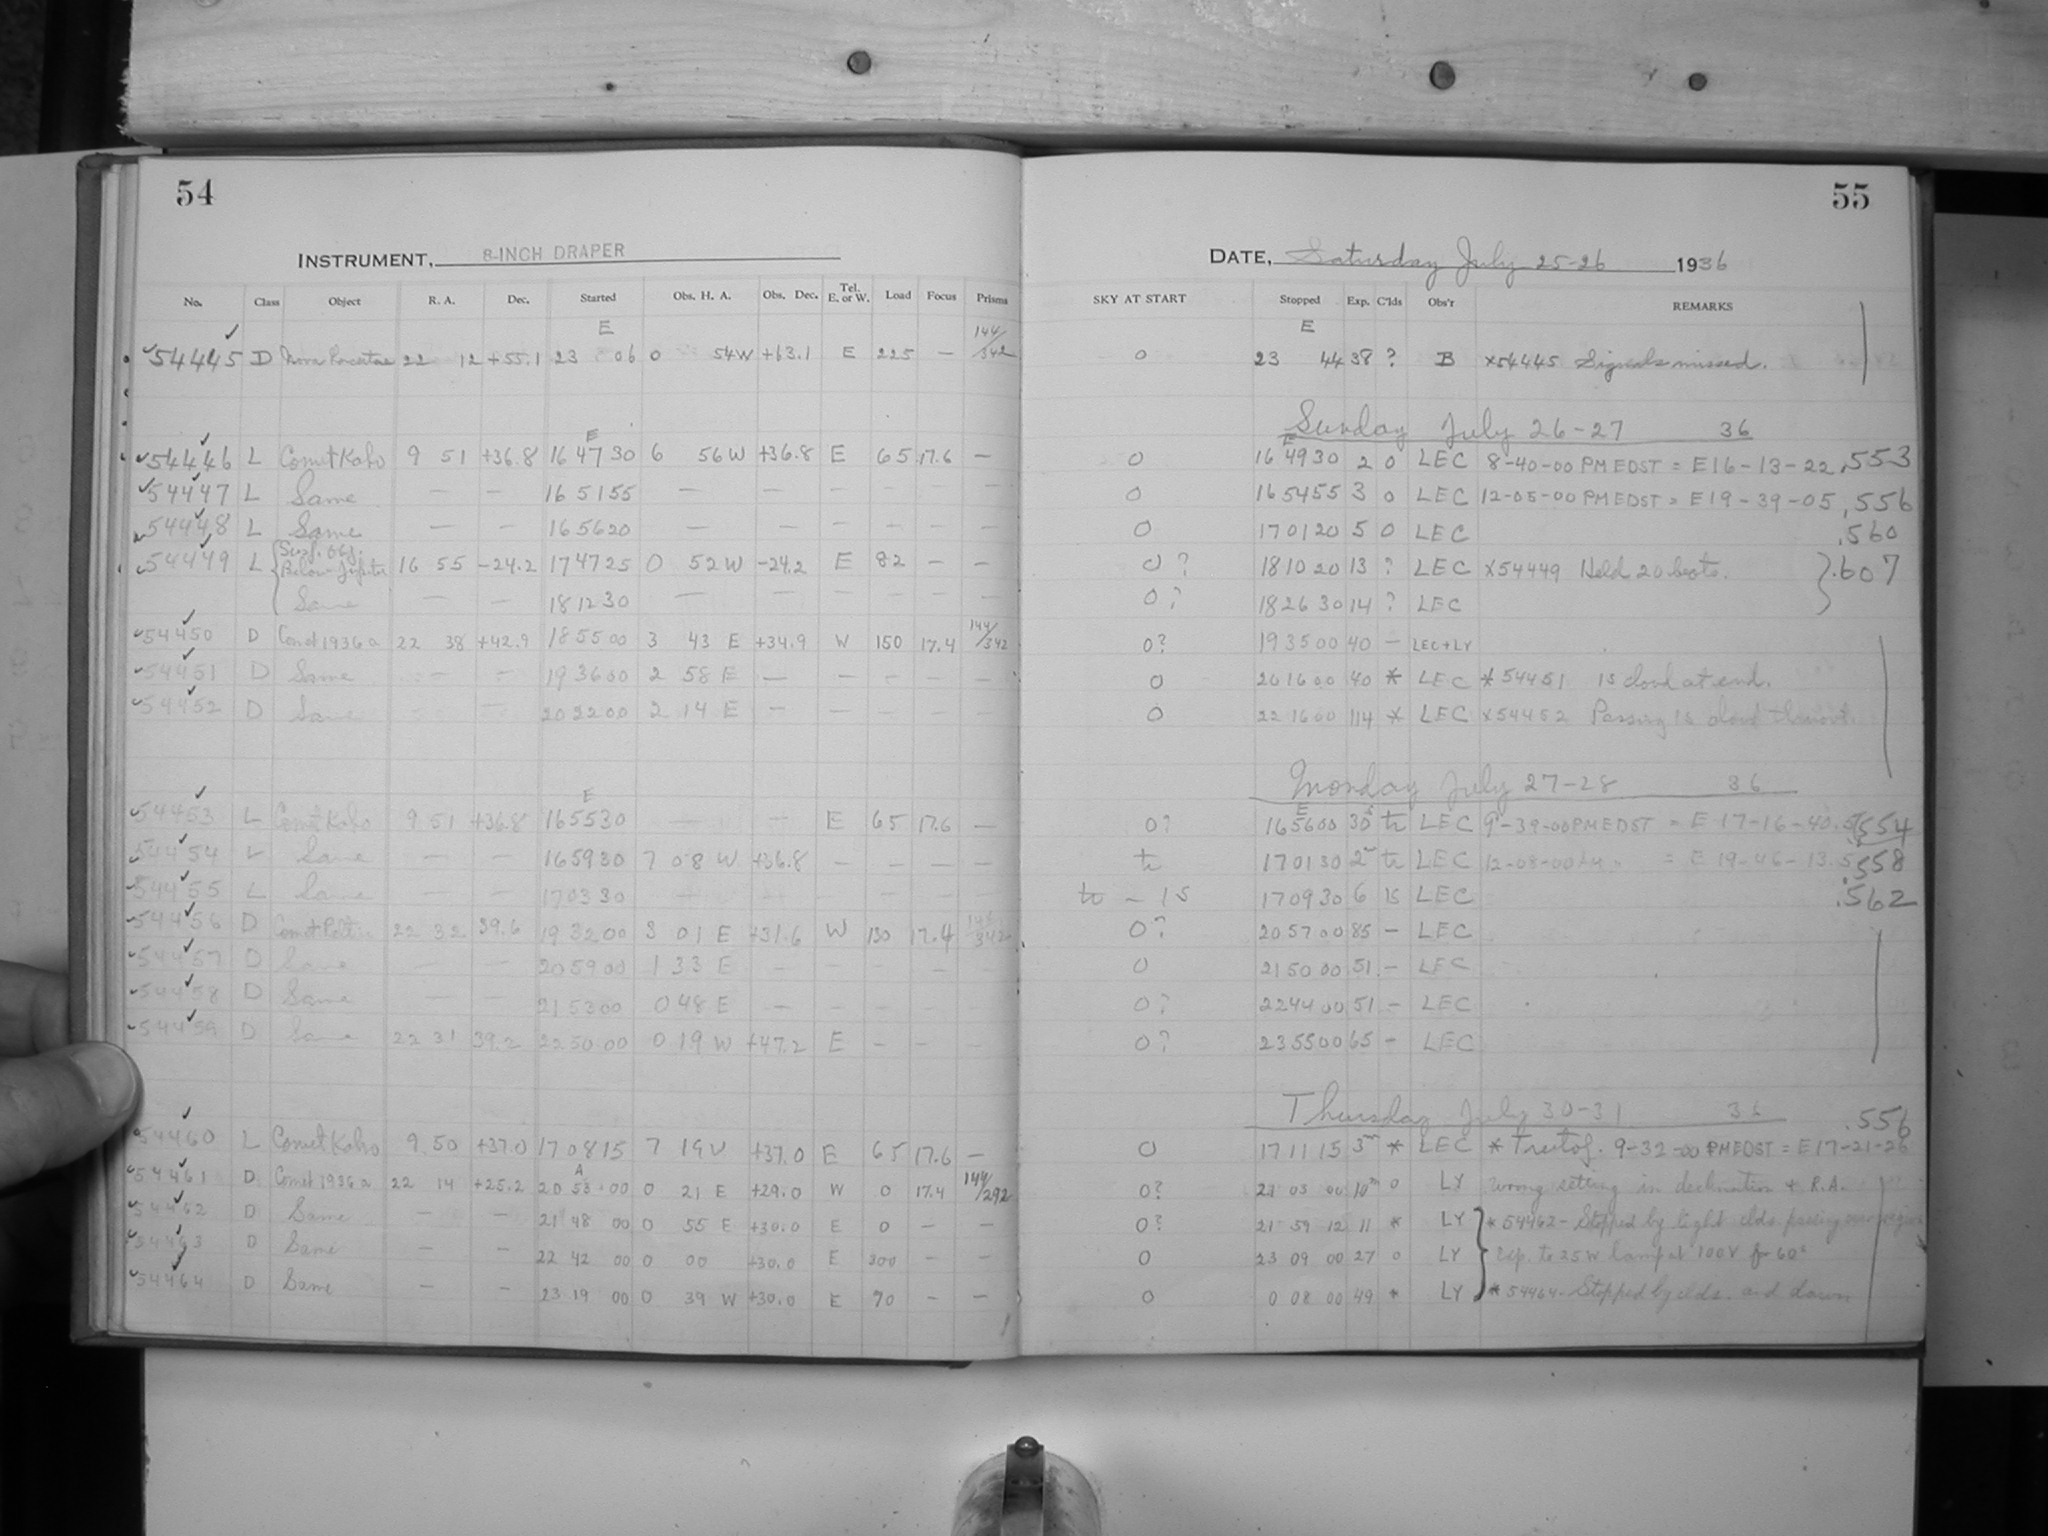 54
INSTRUMENT, 8-INCH DRAPER
No. Class Object R. A. Dec. Started Obs. H. A. Obs. Dec. Tel. E. or W. Load Focus Prisms
E
54445 D Nova Lacertae 22 12 +55.1 23 06 0 54 W +63.1 E 225 — 144/342
E
54446 L Comet Kaho 9 51 +36.8 16 47 30 6 56 W +36.8 E 65 17.6 —
54447 L Same — — 16 51 55 — — — — — —
54448 L Same — — 16 56 20 — — — — — —
54449 L { Susp. Obj. Below Jupiter 16 55 -24.2 17 47 25 0 52 W -24.2 E 82 — —
Same — — 18 12 30 — — — — — —
54450 D Comet 1936a 22 38 +42.9 18 55 00 3 43 E +34.9 W 150 17.4 144/342
54451 D Same — — 19 36 00 2 58 E — — — — —
54452 D Same — — 20 22 00 2 14 E — — — — —
E
54453 L Comet Kaho 9 51 +36.8 16 55 30 — — E 65 17.6 —
54454 L Same — — 16 59 30 7 08 W +36.8 — — — —
54455 L Same — — 17 03 30 — — — — — —
54456 D Comet 22 32 39.6 19 32 00 3 01 E +31.6 W 130 17.4 144/342
54457 D Same — — 20 59 00 1 33 E — — — — —
54458 D Same — — 21 53 00 0 48 E — — — — —
54459 D Same 22 31 39.2 22 50 00 0 19 W +47.2 E — — —
54460 L Comet Kaho 9 50 +37.0 17 08 15 7 19 W +37.0 E 65 17.6 —
A
54461 D Comet 1936a 22 14 +25.2 20 53 00 0 21 E +29.0 W 0 17.4 144/292
54462 D Same — — 21 48 00 0 55 E +30.0 E 0 — —
54463 D Same — — 22 42 00 0 00 +30.0 E 300 — —
54464 D Same — — 23 19 00 0 39 W +30.0 E 70 — —
55
DATE, Saturday July 25-26 1936
SKY AT START Stopped Exp. C'lds Obs'r REMARKS
E
0 23 44 38 ? B ×54445 Signals missed.
Sunday July 26-27 36
E
0 16 49 30 2 0 LEC 8-40-00 PM EDST = E 16-13-22 .553
0 16 54 55 3 0 LEC 12-05-00 PM EDST = E 19-39-05 .556
0 17 01 20 5 0 LEC .560
0? 18 10 20 13 ? LEC ×54449 Held 20 beats. } .607
0? 18 26 30 14 ? LEC
0? 19 35 00 40 — LEC+LY
0 20 16 00 40 * LEC *54451 1s cloud at end.
0 22 16 00 114 * LEC ×54452 Passing 1s cloud thruout.
Monday July 27-28 36
E
0? 16 56 00 30s tr LEC 9-39-00 PM EDST = E 17-16-40.5 .554
tr 17 01 30 2m tr LEC 12-08-00 = E 19-46-13.5 .558
tr - 1s 17 09 30 6 1s LEC .562
0? 20 57 00 85 — LEC
0 21 50 00 51 — LEC
0? 22 44 00 51 — LEC
0? 23 55 00 65 — LEC
Thursday July 30-31 36 .556
0 17 11 15 3m * LEC * 9-32-00 PM EDST = E 17-21-26
0? 21 03 00 10m 0 LY Wrong setting in declination + R.A.
0? 21 59 12 11 * LY } *54462 - Stopped by light clds. passing over
0 23 09 00 27 0 LY exp. to 25W lamp at 100V for 60s
0 0 08 00 49 * LY *54464 - Stopped by clds. and dawn